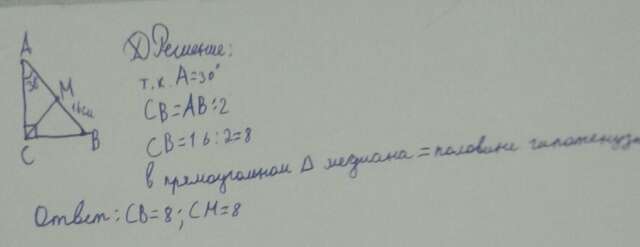 Решение:
A
т.к. A=30°
30
M
16см
CB=AB:2
C
B
CB=16:2=8
в прямоугольном Δ медиана = половине гипотенузы
Ответ: CB=8; CM=8